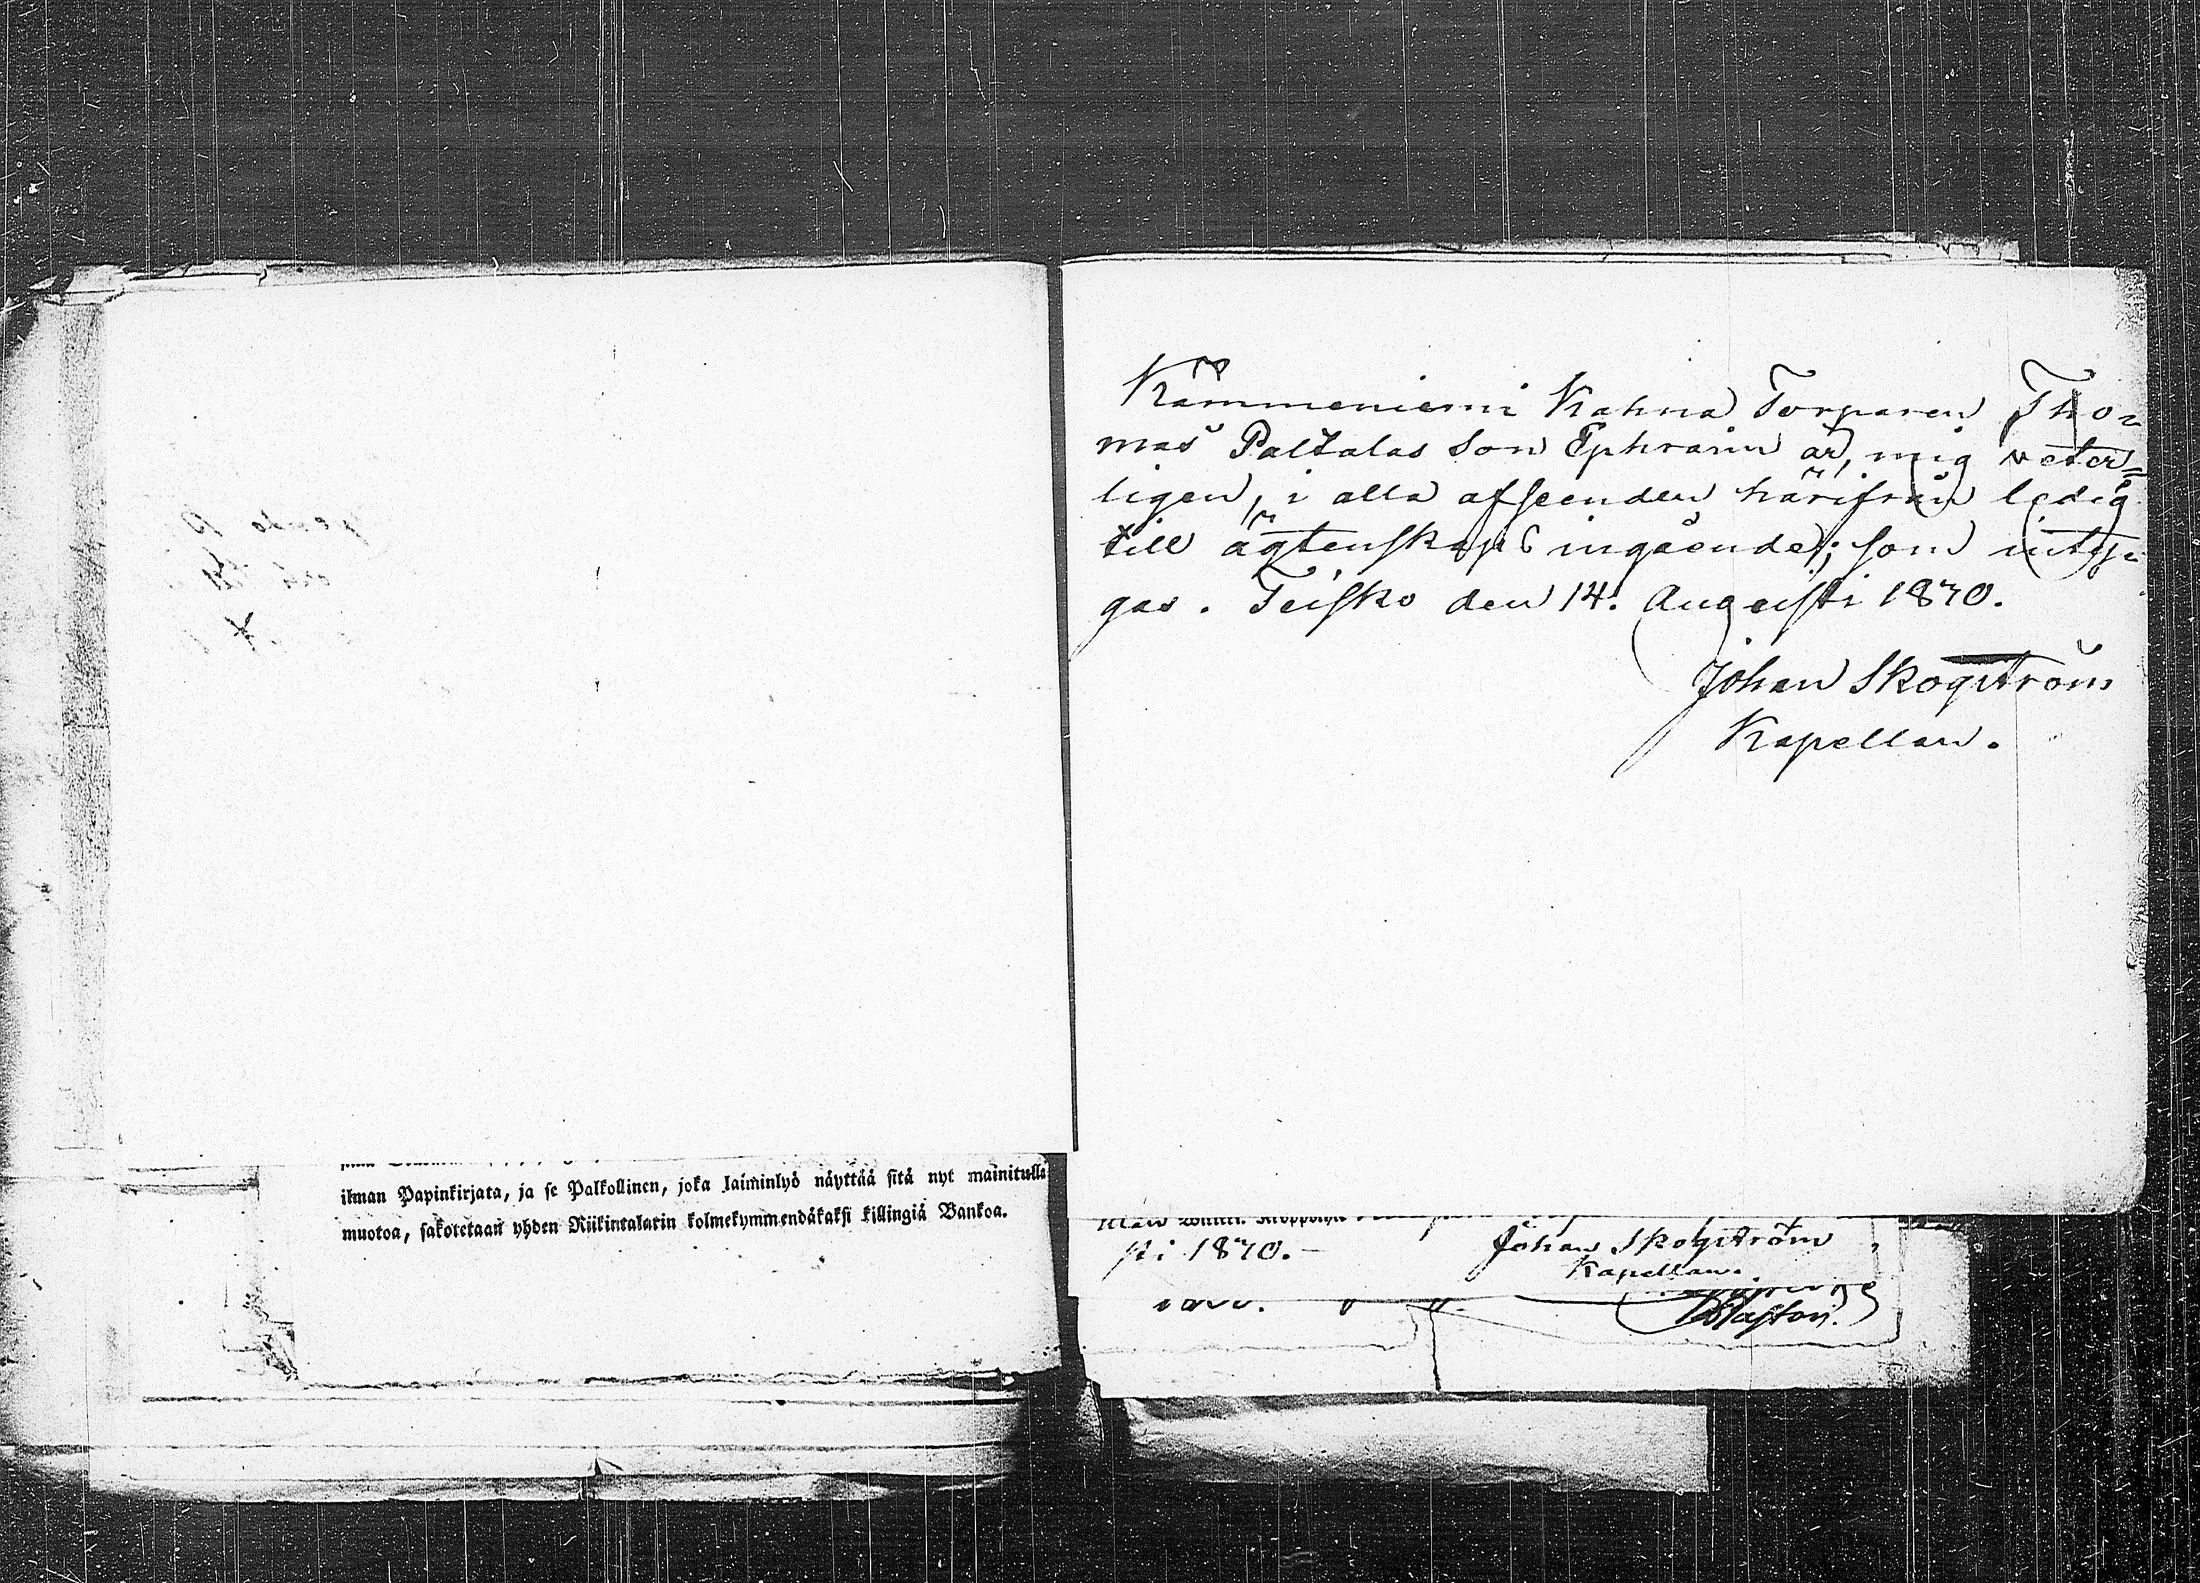 Kämmeniemi Kahna Torparen Tho-
mas Paltalas Son Ephraim är, mig veter-
ligen, i alla afseenden härifrån ledig
till ägtenskaps ingående; som inty-
gas. Teisko den 14. Augusti 1870.
Johan Skogström
Kapellan.
ilman Papinkirjata, ja se Palkollinen, joka laiminlyö näyttää sitä nyt mainitulla
muotoa, sakotetaan yhden Riikintalarin kolmekymmendäkaksi killingiä Bankoa.
sti 1870.-
Johan Skogström
Kapellan.
Pastor.